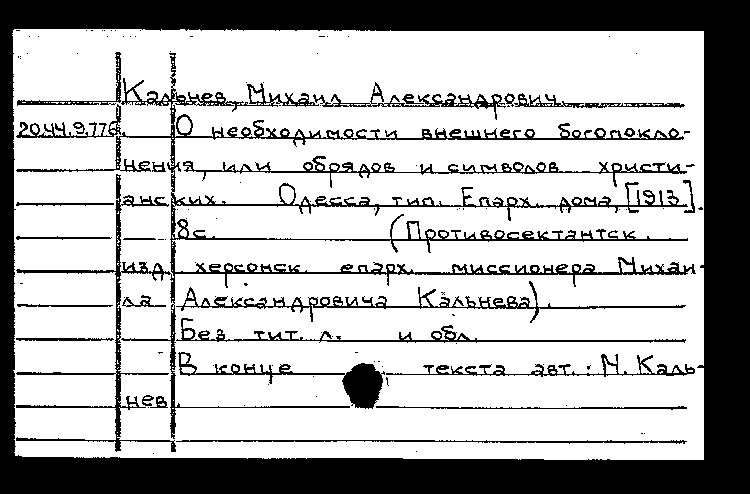 Кальнев, Михаил Александрович.
20.44.9.776. О необходимости внешнего богопокло-
нения, или обрядов и символов христи-
анских. Одесса, тип. Епарх. дома, [1913].
8с. (Противосектантск.
изд. херсонск. епарх. миссионера Михаи-
ла Александровича Кальнева).
Без тит. л. и обл.
В конце текста авт.: М. Каль-
нев.